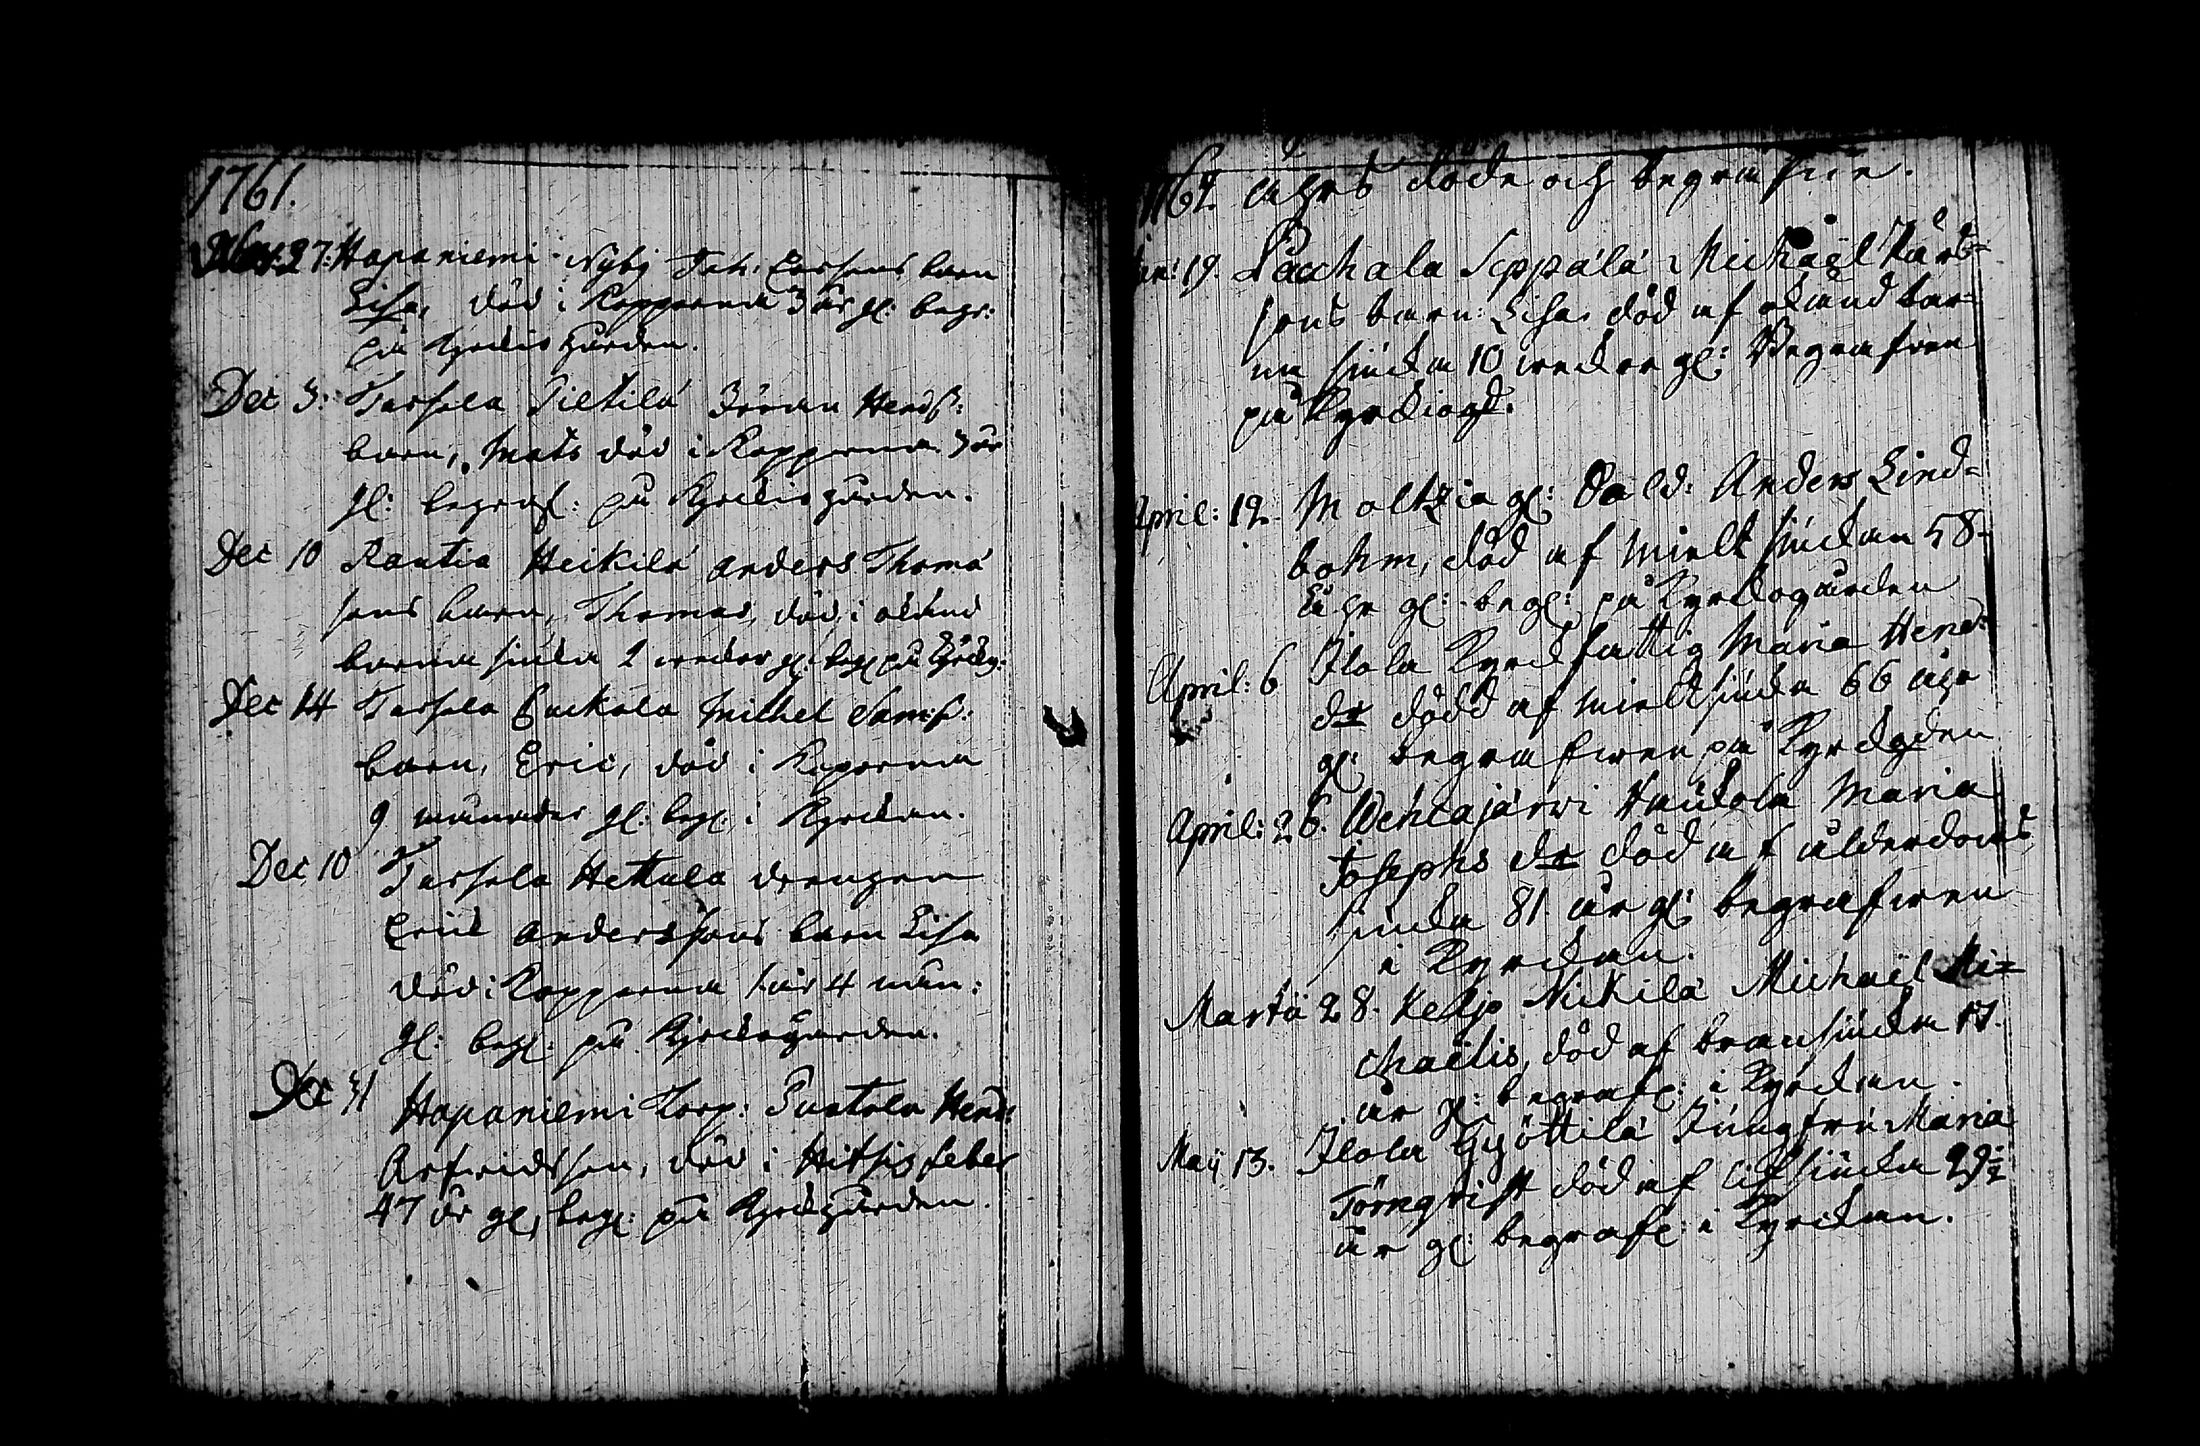 1761.
27: Hapaniemi Nyby Joh: Ersons barn
Lisa, död i Kopporna 3 år gl: begr:
på Kyrkiogården.
Dec 3: Tassola Pietilä Jöran Hends:
barn, Mats död i Kopporna 3 år
gl: begraf: på Kyrkiogården.
Dec 10 Rautia Heikilä Anders Thoma
sons barn, Thomas, död i okänd
barna siuka 2 wekor gl: begr på Kyrkg:
Dec 14 Tassola Michel Sams:
barn, Eric, död i Kopporna
9 månader gl: begr: i Kyrckan.
Dec 10 Tassola Hettula drengen
Erick Anderssons barn Lisa
död i Kopporna 1 år 4 mån:
gl: begr: på Kyrckogården.
Dec 31 Hapaniemi Torp: Hend:
Arfwidsson, död i Hitsig feber
47 år gl, begr: på Kyrckgården.
1762 åhrs döde och begrafne.
19. Pacchala Seppälä Michaël
sons barn: Lisa, död af okänd bar-
na siucka 10 weckor gl: Begrafwen
på Kyrckiogd:
April: 12. Maltzia gl: Sold: Anders Lind-
bohm, död af Mielt siuckan 58
åhr gl: begr: på Kyrckogården
April: 6 Ilola Kyrckfattig Maria Hend:
dr dödd af Mieltsiucka 66 åhr
gl: begrafwen på Kyrckgden
April: 26. Wehcajärwi Haukola Maria
Josephs dr död af ålderdoms
siucka 81 år gl: begrafwen
i Kyrckan.
Marti 28. Keljo Nickilä Michaël Mi=
chaelis, död af bransiucka 17.
år gl: begrafe: i Kyrckan.
Maij 13. Ilola Jungfru Maria
Törnqvist död af siucka 29 1/2
år gl: begrafe: i Kyrckan.